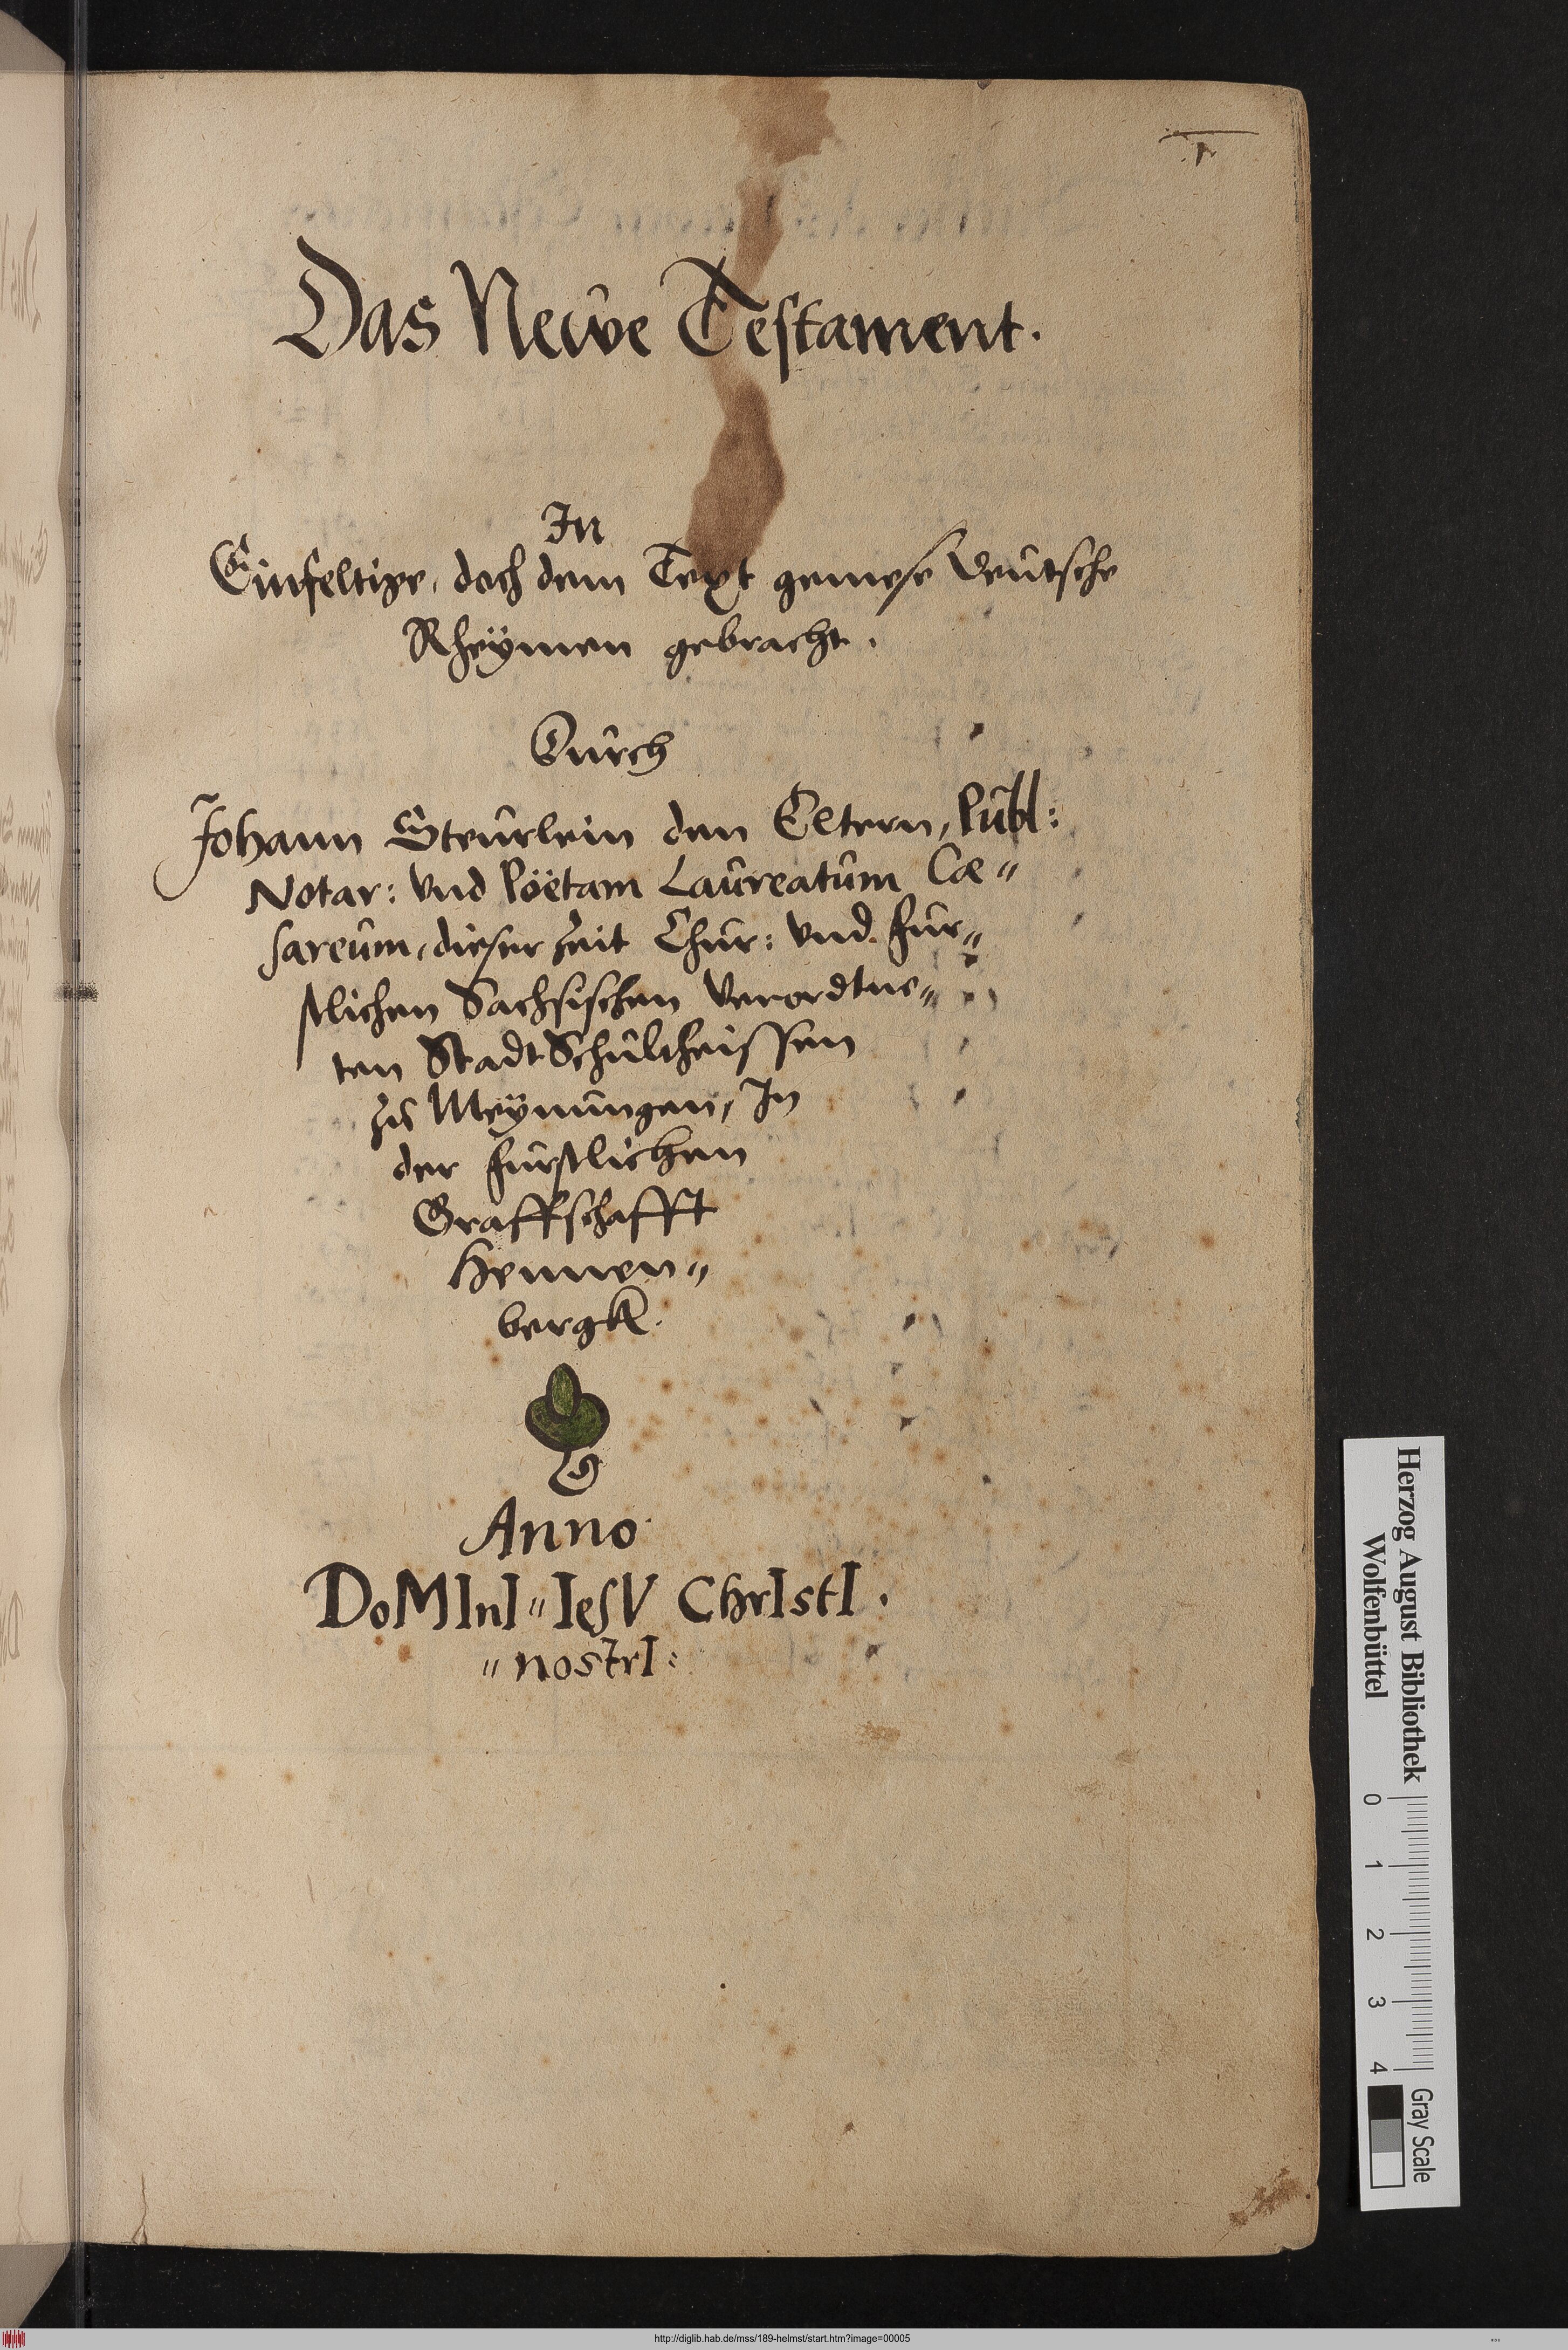 1.
Das Neuve Testament.
In
Einfeltige, doch dem Text gemese Deutsche
Rheÿmen gebracht.
Durch
Johann Steurlein den Eltern, Publ:
Notar: vnd Poëtam Laureatum Cæ〃
sareum, dieser Zeit Chur: vnd Fur〃
stlichen Sachsischen Verordtne〃
ten Stadt Schultheissen
zu Meÿnungen, In
der Furstlichen
Graffschafft
Hennen〃
bergk.
Anno
DoMInI〃IesV ChrIstI.
〃nostrI:
Herzog August Bibliothek
Wolfenbüttel
0 1 2 3 4
Gray Scale
http://diglib.hab.de/mss/189-helmst/start.htm?image=00005